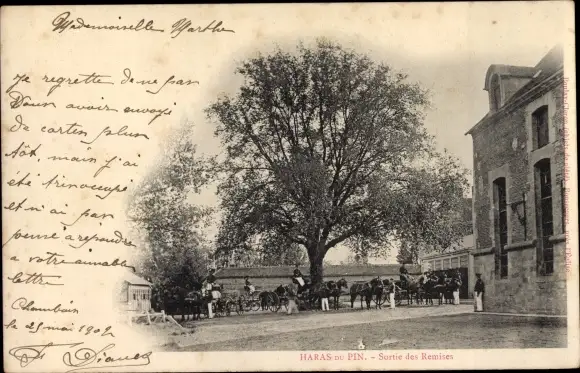 Mademoiselle Marthe
Je regrette de ne pas
vous avoir envoyé
de carten plus
tôt main j'ai
été trinocupé
et n'ai pas
pensé a repondre
a votre aimable
lettre
le 25 mai 1902
HARAS DU PIN. - Sortie des Remises